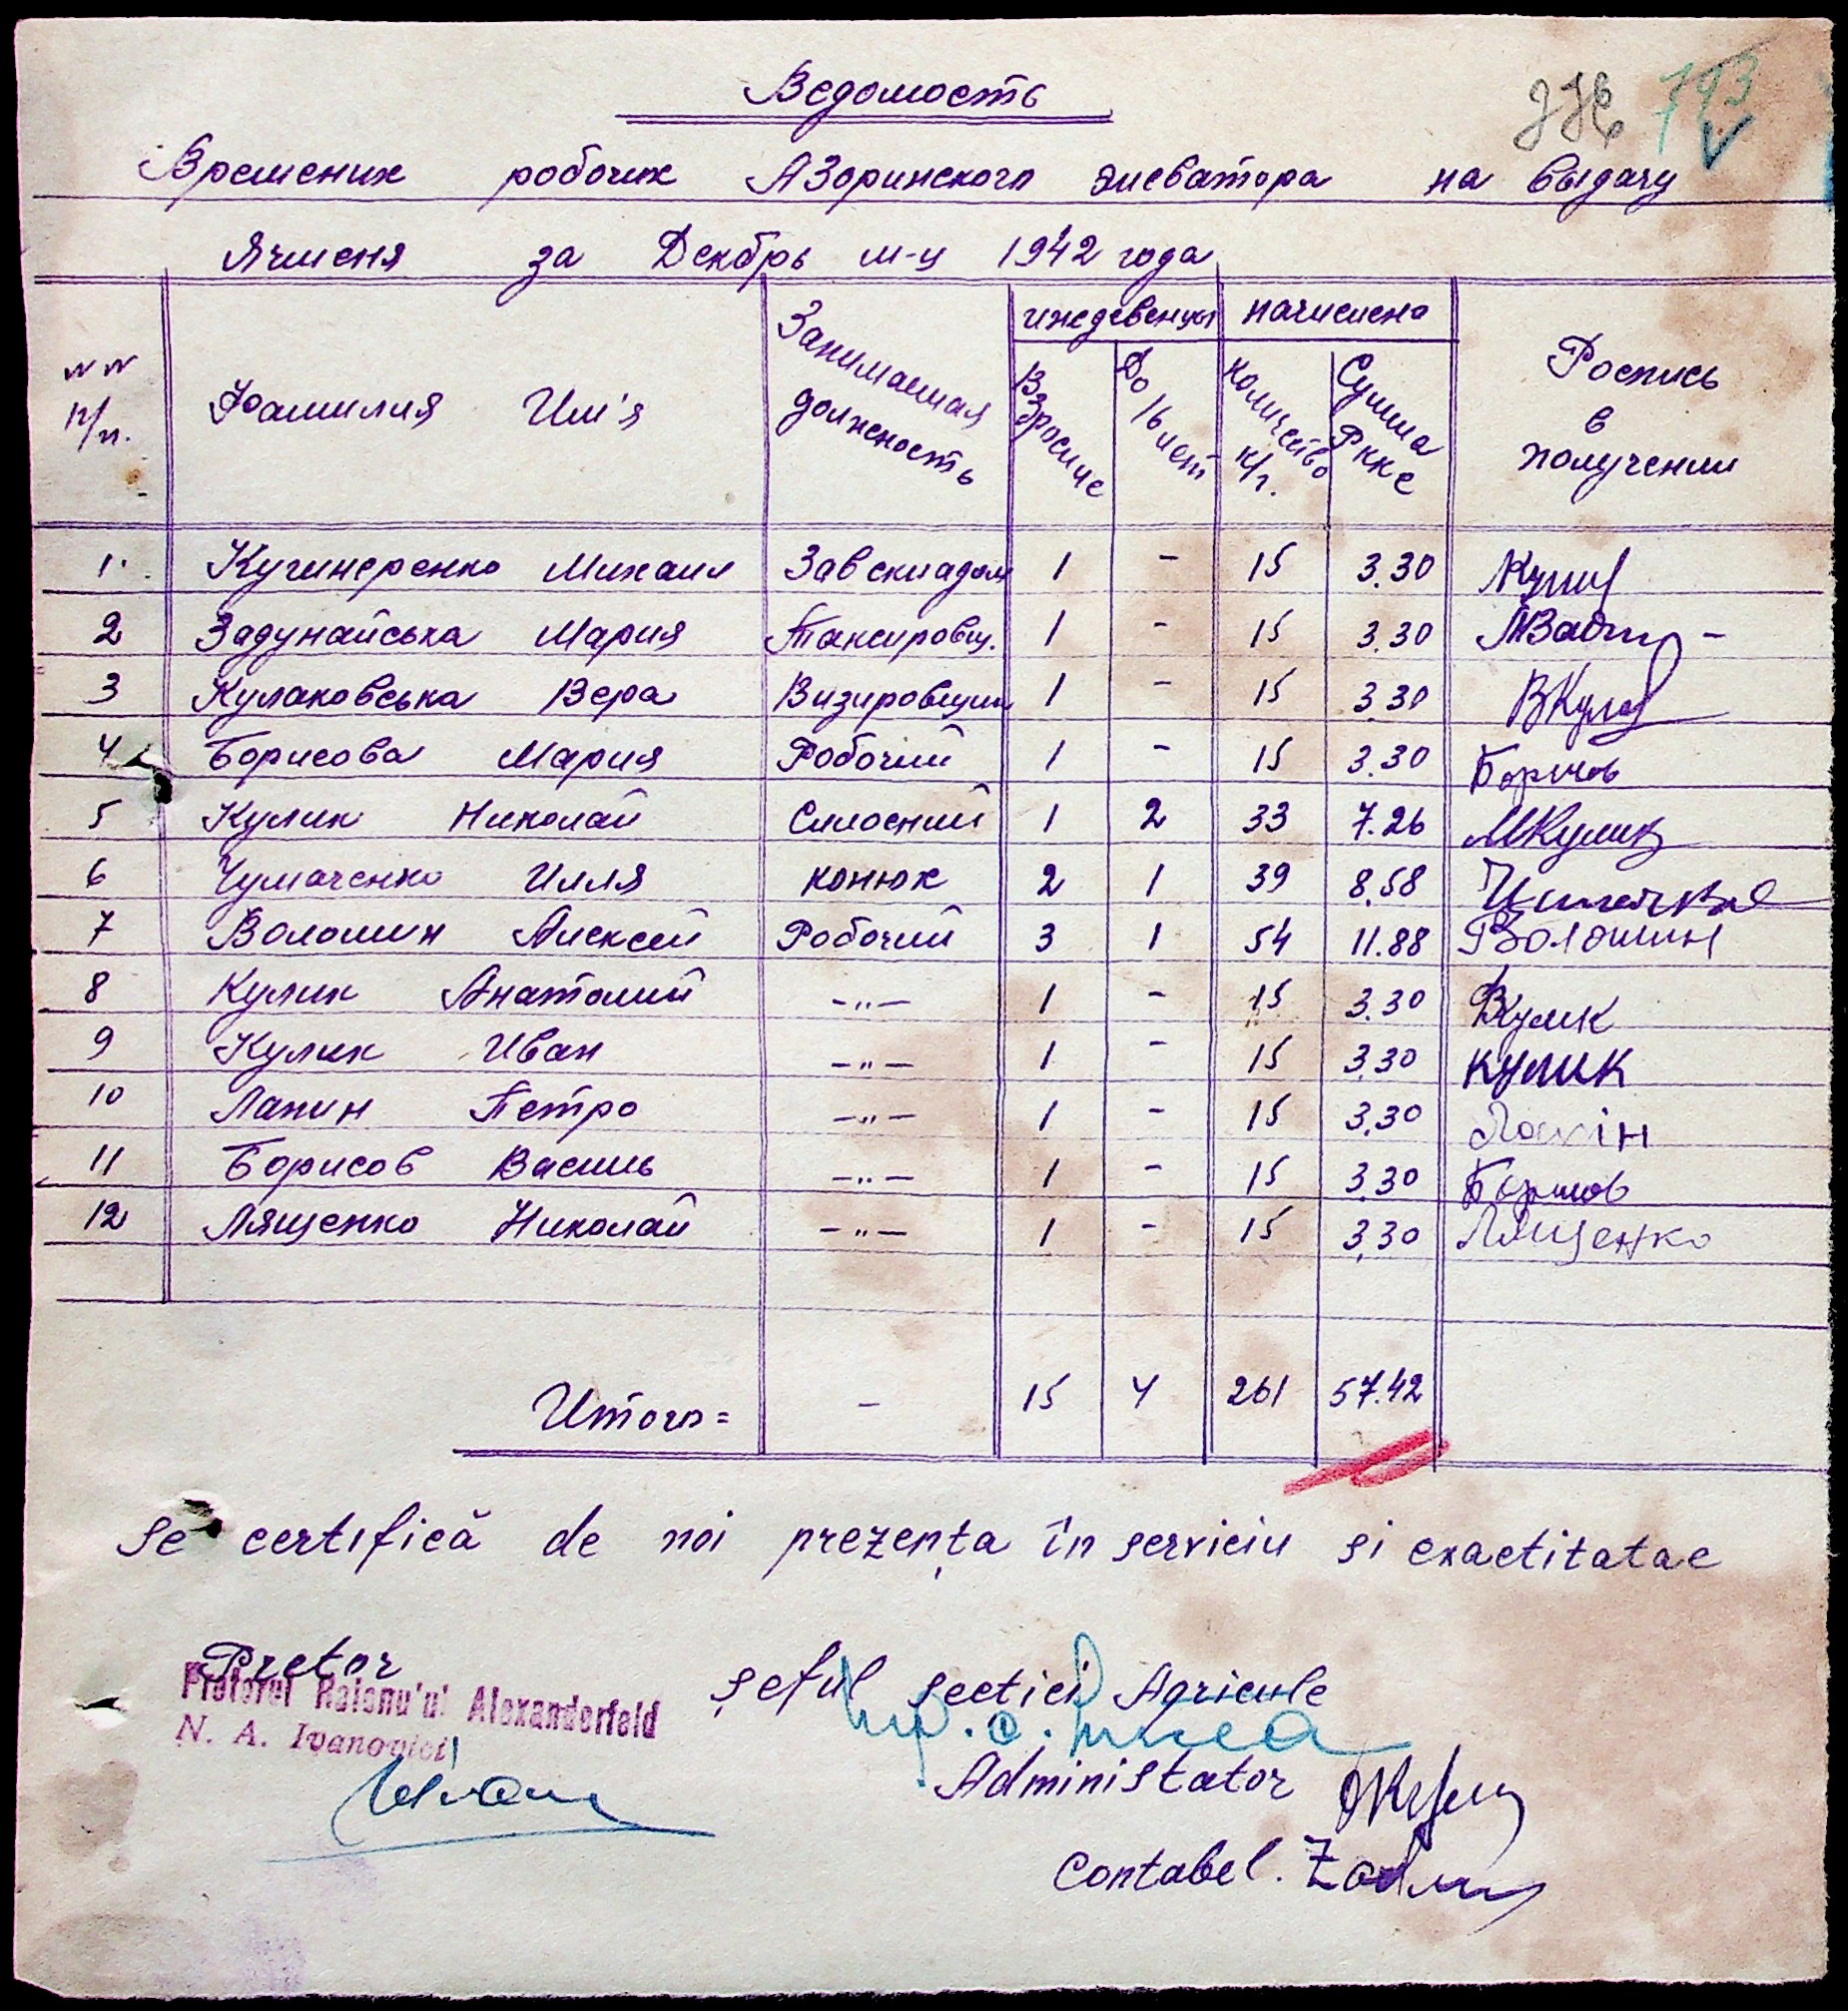 793
Ведомость
Времених робочих АЗоринского элеватора на выдачу
Ячменя за Декабрь м-ц 1942 года
NN п/п. Фамилия Им'я Занимаемая должность иждевенцы Взрослые До 16 лет начислено Количество к/г. Сумма Ркке Роспись в получении
1. Кучинеренко Михаил Завскладом 1 - 15 3.30
2 Задунайська Мария Таксировщ. 1 - 15 3.30 МЗадун -
3 Кулаковська Вера Визировщик 1 - 15 3.30 ВКулак
4 Борисова Мария Робочий 1 - 15 3.30 Борисов
5 Кулик Николай Силосний 1 2 33 7.26 МКулик
6 Чумаченко Илля конюх 2 1 39 8.58
7 Волошин Алексей Робочий 3 1 54 11.88 Волошин
8 Кулик Анатолий -„- 1 - 15 3.30 Кулик
9 Кулик Иван -„- 1 - 15 3.30 Кулик
10 Лапин Петро -„- 1 - 15 3.30 Лапін
11 Борисов Василь -„- 1 - 15 3.30 Борисов
12 Лященко Николай -„- 1 - 15 3.30 Лященко
Итого = - 15 4 261 57.42
Se certifică de noi prezența în serviciu și exactitatae
Pretor
Pretorul Raionu'u' Alexanderfeld
N. A. Ivanovici
șeful secției Agricole
Administator
Contabel.